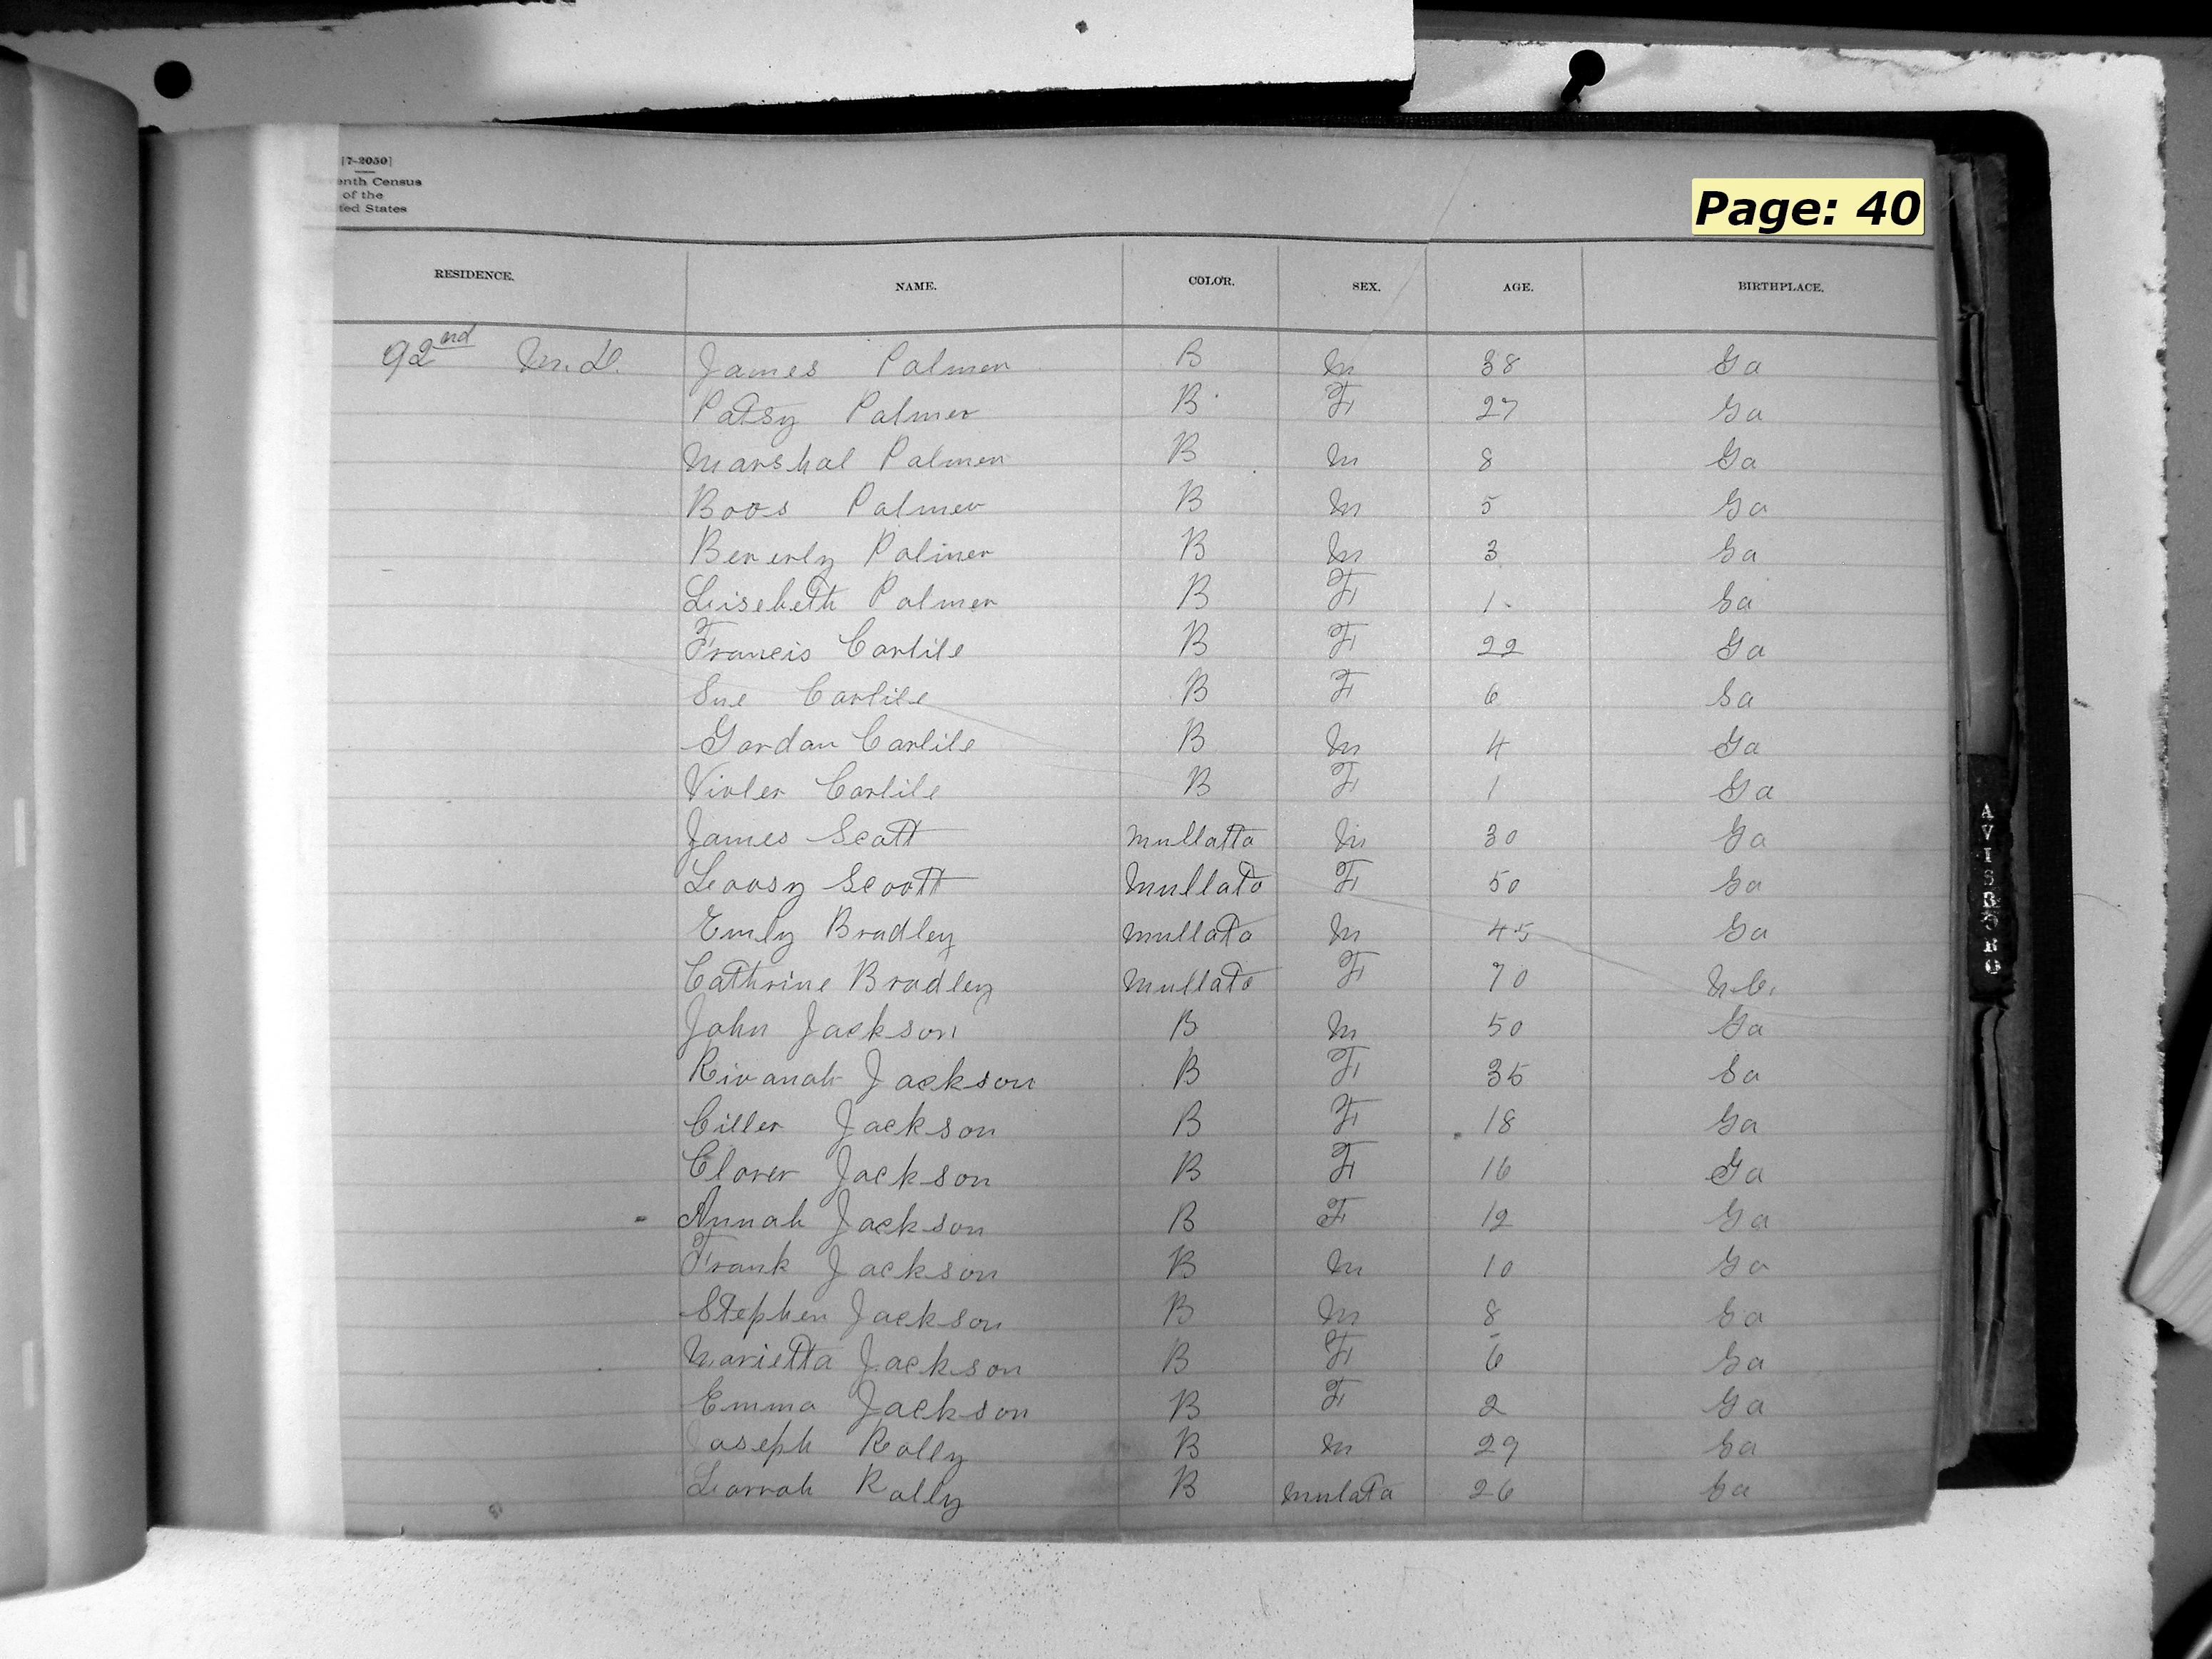 [7-2050]
enth Census
of the
ted States
Page: 40
RESIDENCE. NAME. COLOR. SEX. AGE. BIRTHPLACE.
92nd M.D. James Palmer B M 38 Ga
Patsy Palmer B F 27 Ga
Marshal Palmer B M 8 Ga
Boos Palmer B M 5 Ga
Beverly Palmer B M 3 Ga
Lisebeth Palmer B F 1 Ga
Francis Carlile B F 22 Ga
Sue Carlile B F 6 Ga
Gordan Carlile B M 4 Ga
Virler Carlile B F 1 Ga
James Scott mullatta M 30 Ga
Loosy Scott Mullato F 50 Ga
Emly Bradley mullato M 45 Ga
Cathrine Bradley Mullato F 70 N.C.
John Jackson B M 50 Ga
Rivanah Jackson B F 35 Ga
Ciller Jackson B F 18 Ga
Clover Jackson B F 16 Ga
Annah Jackson B F 12 Ga
Frank Jackson B M 10 Ga
Stephen Jackson B M 8 Ga
Marietta Jackson B F 6 Ga
Emma Jackson B F 2 Ga
Joseph Rolly B M 29 Ga
Rally B mulata 26 Ga
AVISBORO